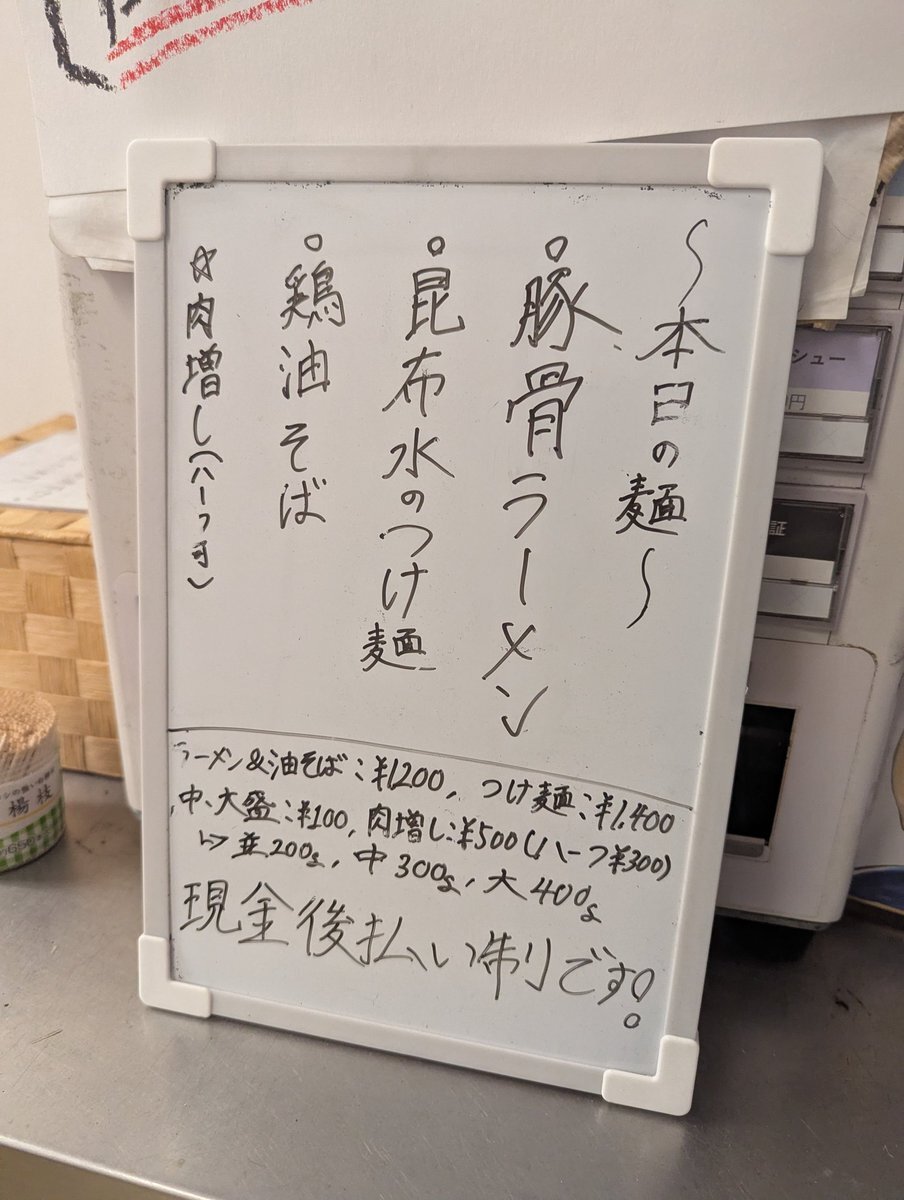 〜本日の麺〜
○豚骨ラーメン
○昆布水のつけ麺
○鶏油そば
☆肉増し(ハーフ可)
ラーメン&油そば:¥1200, つけ麺:¥1,400
中、大盛:¥100, 肉増し:¥500(ハーフ¥300)
↳並200g, 中300g, 大400g
現金後払い制です!
シュー
円
証
楊枝